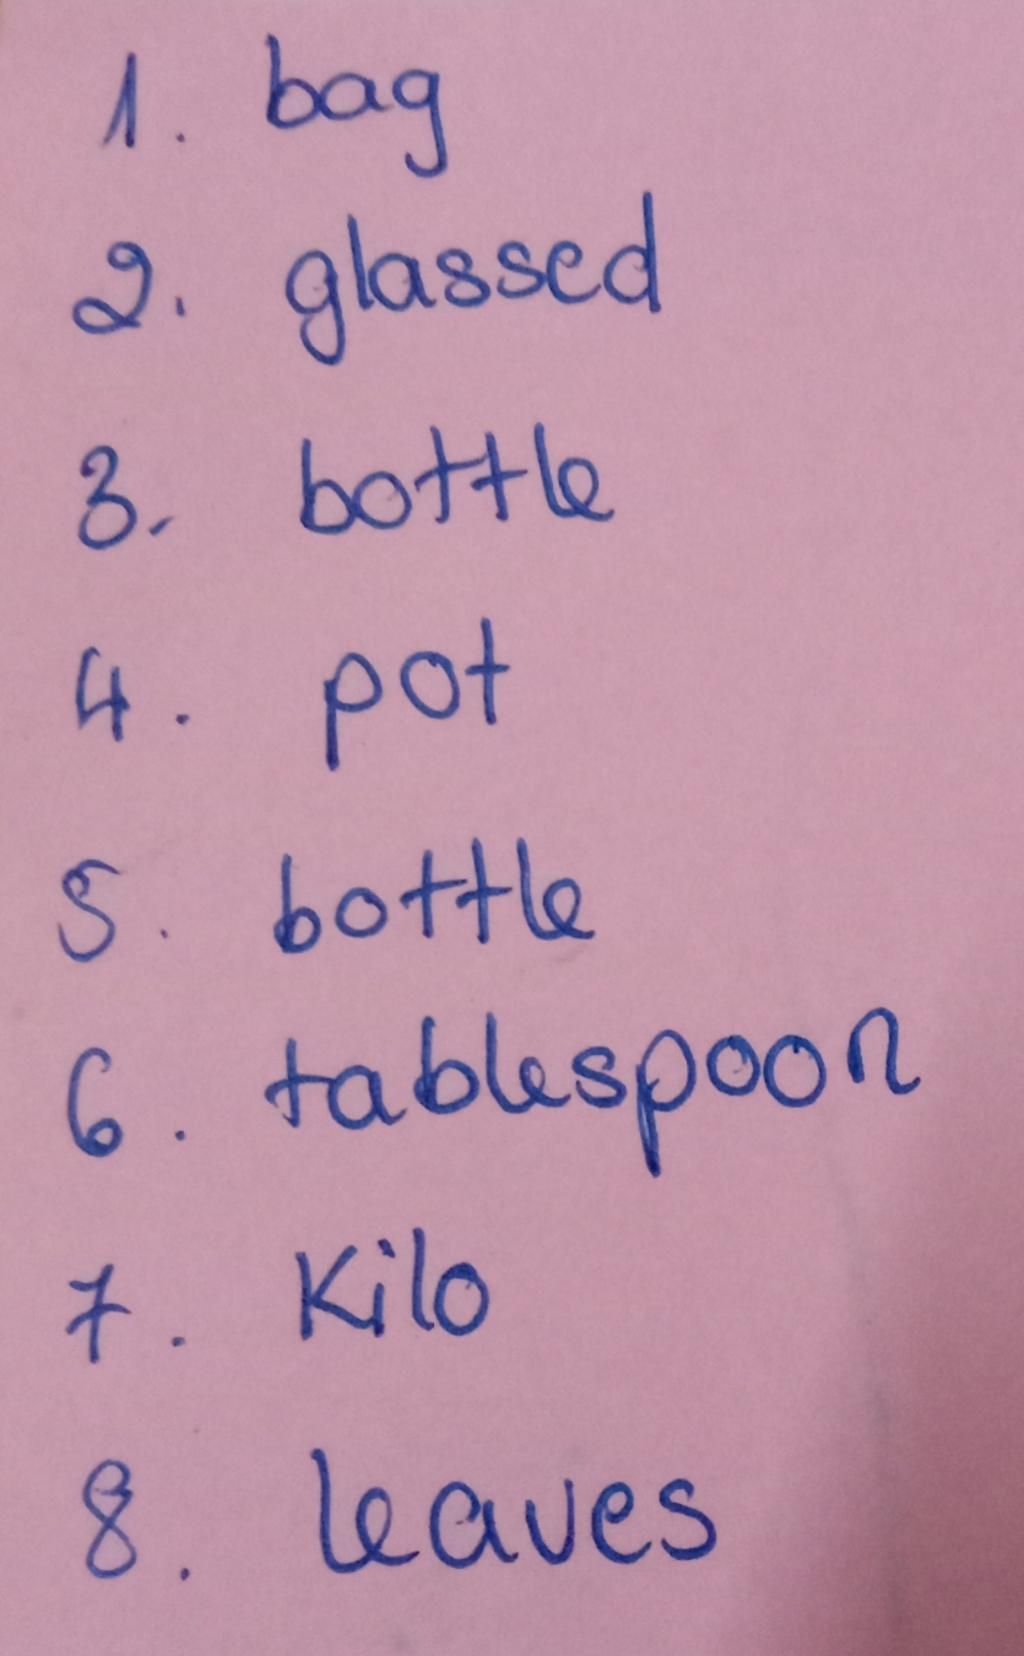 1. bag
2. glassed
3. bottle
4. pot
5. bottle
6. tablespoon
7. Kilo
8. leaves